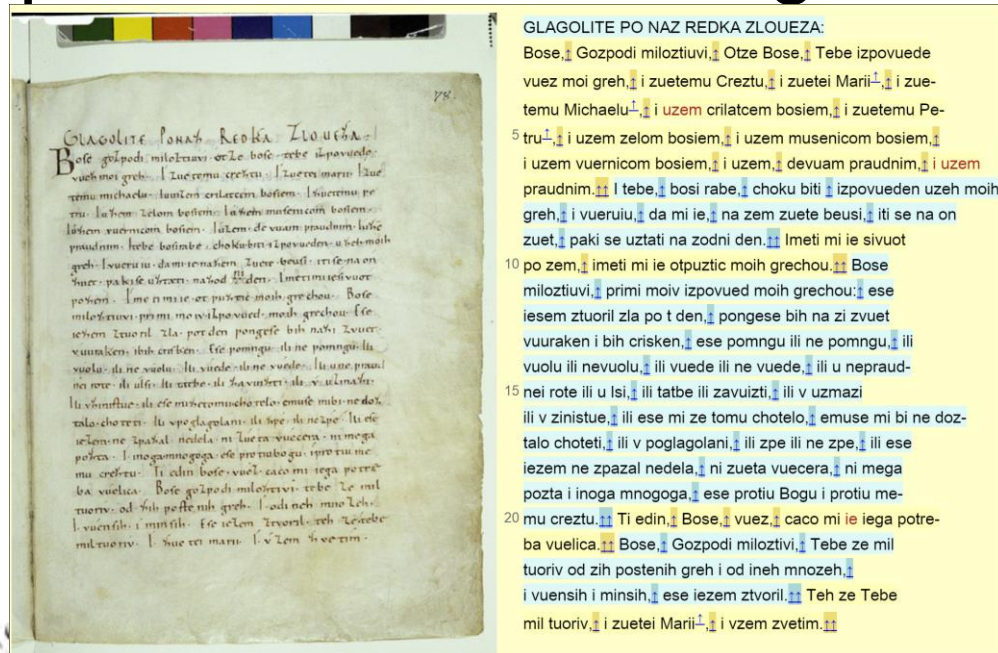 GLAGOLITE PONAZ REDKA ZLOUEZA.
Bose gozpodi miloztiuvi. otze bose. tebe izpovuede.
vuez moi greh. I zuetemu creztu. I zuetei marii. I zue
temu michaelu. Iuuizem crilatcem bosiem. I zuetemu pe
tru. I uzem zelom bosiem. I uzem musenicom bosiem.
Iuzem vuernicom bosiem. Iuzem. devuam praudnim. Iuzie
praudnim. Itebe bosirabe. chokubiti izpovueden. uzeh moih
greh. I vueruiu. da mi ie nazem. zuete beusi. iti se na on
zuet. pakise uztati. nazod ni den. Imeti mi ie sivuot
pozem. Imeti mi ie. ot puztic moih grechou. Bose
miloztiuvi. primi moiv izpovued. moih grechou. Ese
iezem ztuoril zla. pot den pongese bih nazi zvuet.
vuuraken. i bih crisken. Ese pomngu. ili ne pomngu. Ili
vuolu. ili ne vuolu. Ili vuede. ili ne vuede. Ili u ne praud
nei rote. ili ulsi. Ili tatbe. ili zavuizti. ili v uzmazi.
Ili vzinistue. ili ese mizetomuchotelo. emuse mibi ne doz
talo. choteti. Ili vpoglagolani. ili zpe. ili nezpe. Ili ese
iezem. ne zpazal. nedela. ni zueta vuecera. ni mega
pozta. I inogamnogoga. ese protiubogu. iprotiu me
mu creztu. Ti edin bose. vuez. caco mi iega potre
ba vuelica. Bose gozpodi miloztivi. tebe ze mil
tuoriv. od zih postenih greh. I odineh mnozeh.
I vuensih i minsih. Ese iezem ztvoril. teh ze tebe
mil tuoriv. I zuetei marii. I vzem zvetim.
GLAGOLITE PO NAZ REDKA ZLOUEZA:
Bose, Gozpodi miloztiuvi, Otze Bose, Tebe izpovuede
vuez moi greh, i zuetemu Creztu, i zuetei Marii, i zue-
temu Michaelu, i uzem crilatcem bosiem, i zuetemu Pe-
5 tru, i uzem zelom bosiem, i uzem musenicom bosiem,
i uzem vuernicom bosiem, i uzem, devuam praudnim, i uzem
praudnim. I tebe, bosi rabe, choku biti izpovueden uzeh moih
greh, i vueruiu, da mi ie, na zem zuete beusi, iti se na on
zuet, paki se uztati na zodni den. Imeti mi ie sivuot
10 po zem, imeti mi ie otpuztic moih grechou. Bose
miloztiuvi, primi moiv izpovued moih grechou: ese
iesem ztuoril zla po t den, pongese bih na zi zvuet
vuuraken i bih crisken, ese pomngu ili ne pomngu, ili
vuolu ili nevuolu, ili vuede ili ne vuede, ili u nepraud-
15 nei rote ili u lsi, ili tatbe ili zavuizti, ili v uzmazi
ili v zinistue, ili ese mi ze tomu chotelo, emuse mi bi ne doz-
talo choteti, ili v poglagolani, ili zpe ili ne zpe, ili ese
iezem ne zpazal nedela, ni zueta vuecera, ni mega
pozta i inoga mnogoga, ese protiu Bogu i protiu me-
20 mu creztu. Ti edin, Bose, vuez, caco mi ie iega potre-
ba vuelica. Bose, Gozpodi miloztivi, Tebe ze mil
tuoriv od zih postenih greh i od ineh mnozeh,
i vuensih i minsih, ese iezem ztvoril. Teh ze Tebe
mil tuoriv, i zuetei Marii, i vzem zvetim.